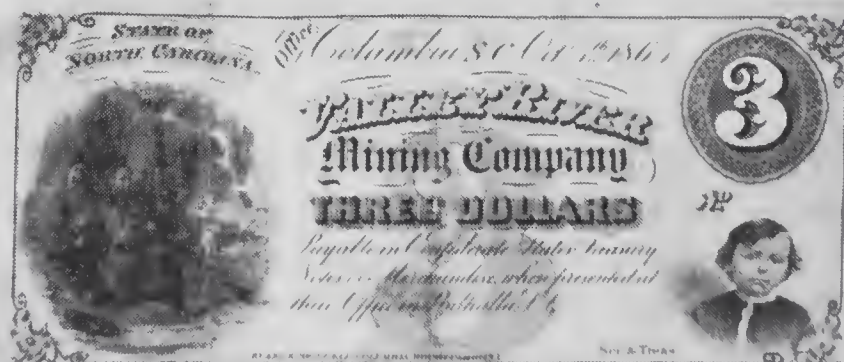 STATE OF
SOUTH CAROLINA
Office, Columbia S.C. Oct. 186
RIVER
Mining Company
THREE DOLLARS
3
Payable in Confederate States Treasury
Notes or Merchandise, when presented at
their Office in Walhalla, S.C.